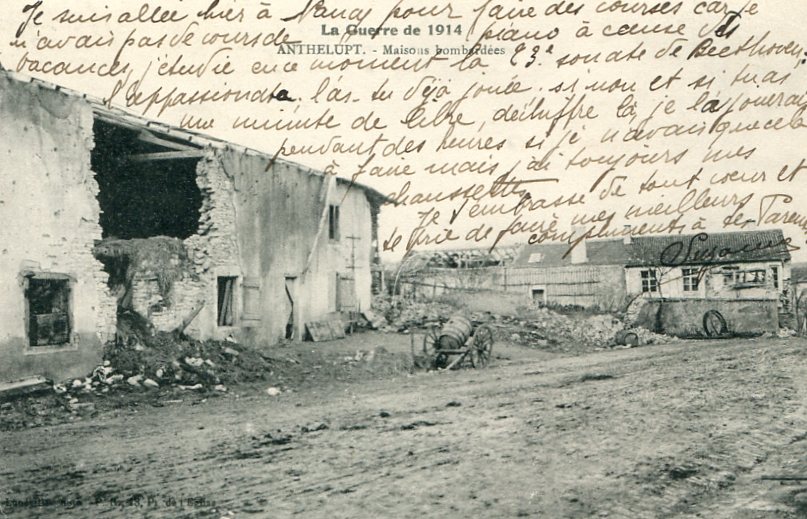 Je suis allée hier à Nancy pour faire des courses car je
La Guerre de 1914
n'avais pas de cours de piano à cause des
ANTHELUPT. - Maisons bombardées
vacances, j'étudie en ce moment la 23e sonate de Beethoven,
l'appassionata. l'as-tu déjà jouée. si non et si tu as
une minute de libre, déchiffre la, je la jouerais
pendant des heures si je n'avais que cela
à faire mais j'ai toujours mes
chaussettes.
Je t'embrasse de tout coeur et
te prie de faire mes meilleurs
compliments à tes Parents
Suzanne